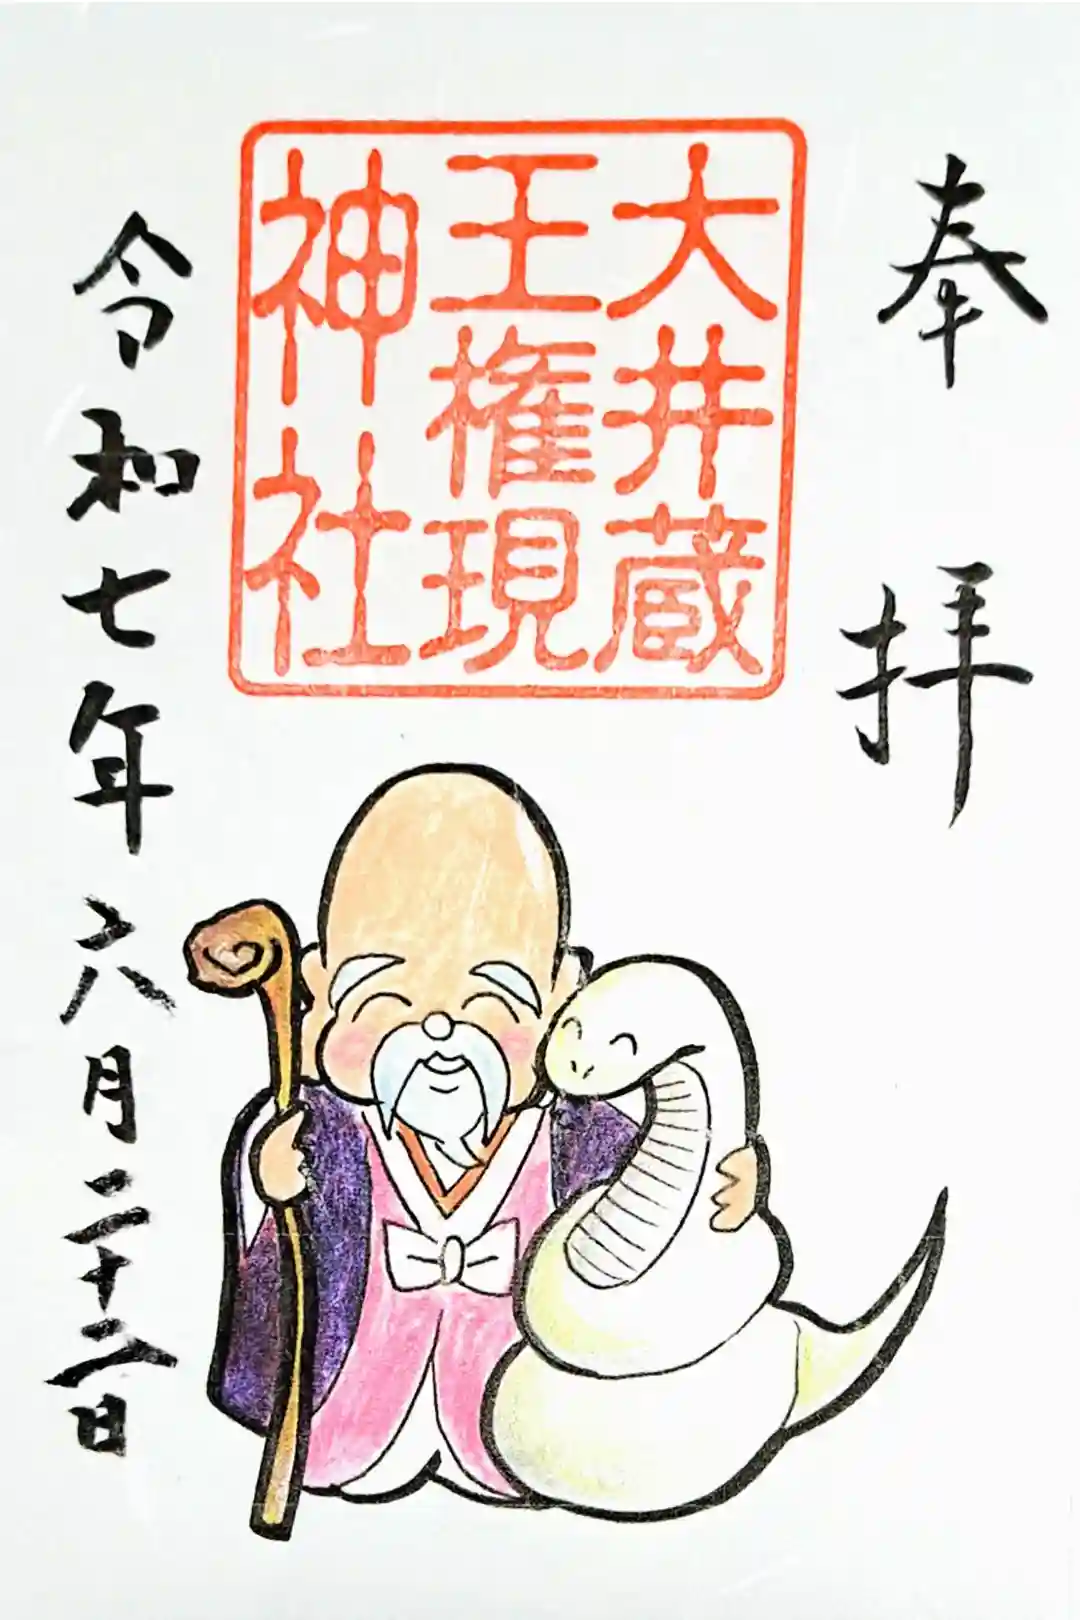 奉拝
大井蔵
王権現
神社
令和七年六月二十二日